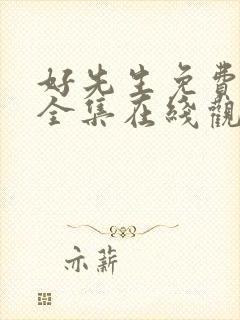 好先生免費
全集在綫觀
亦薪